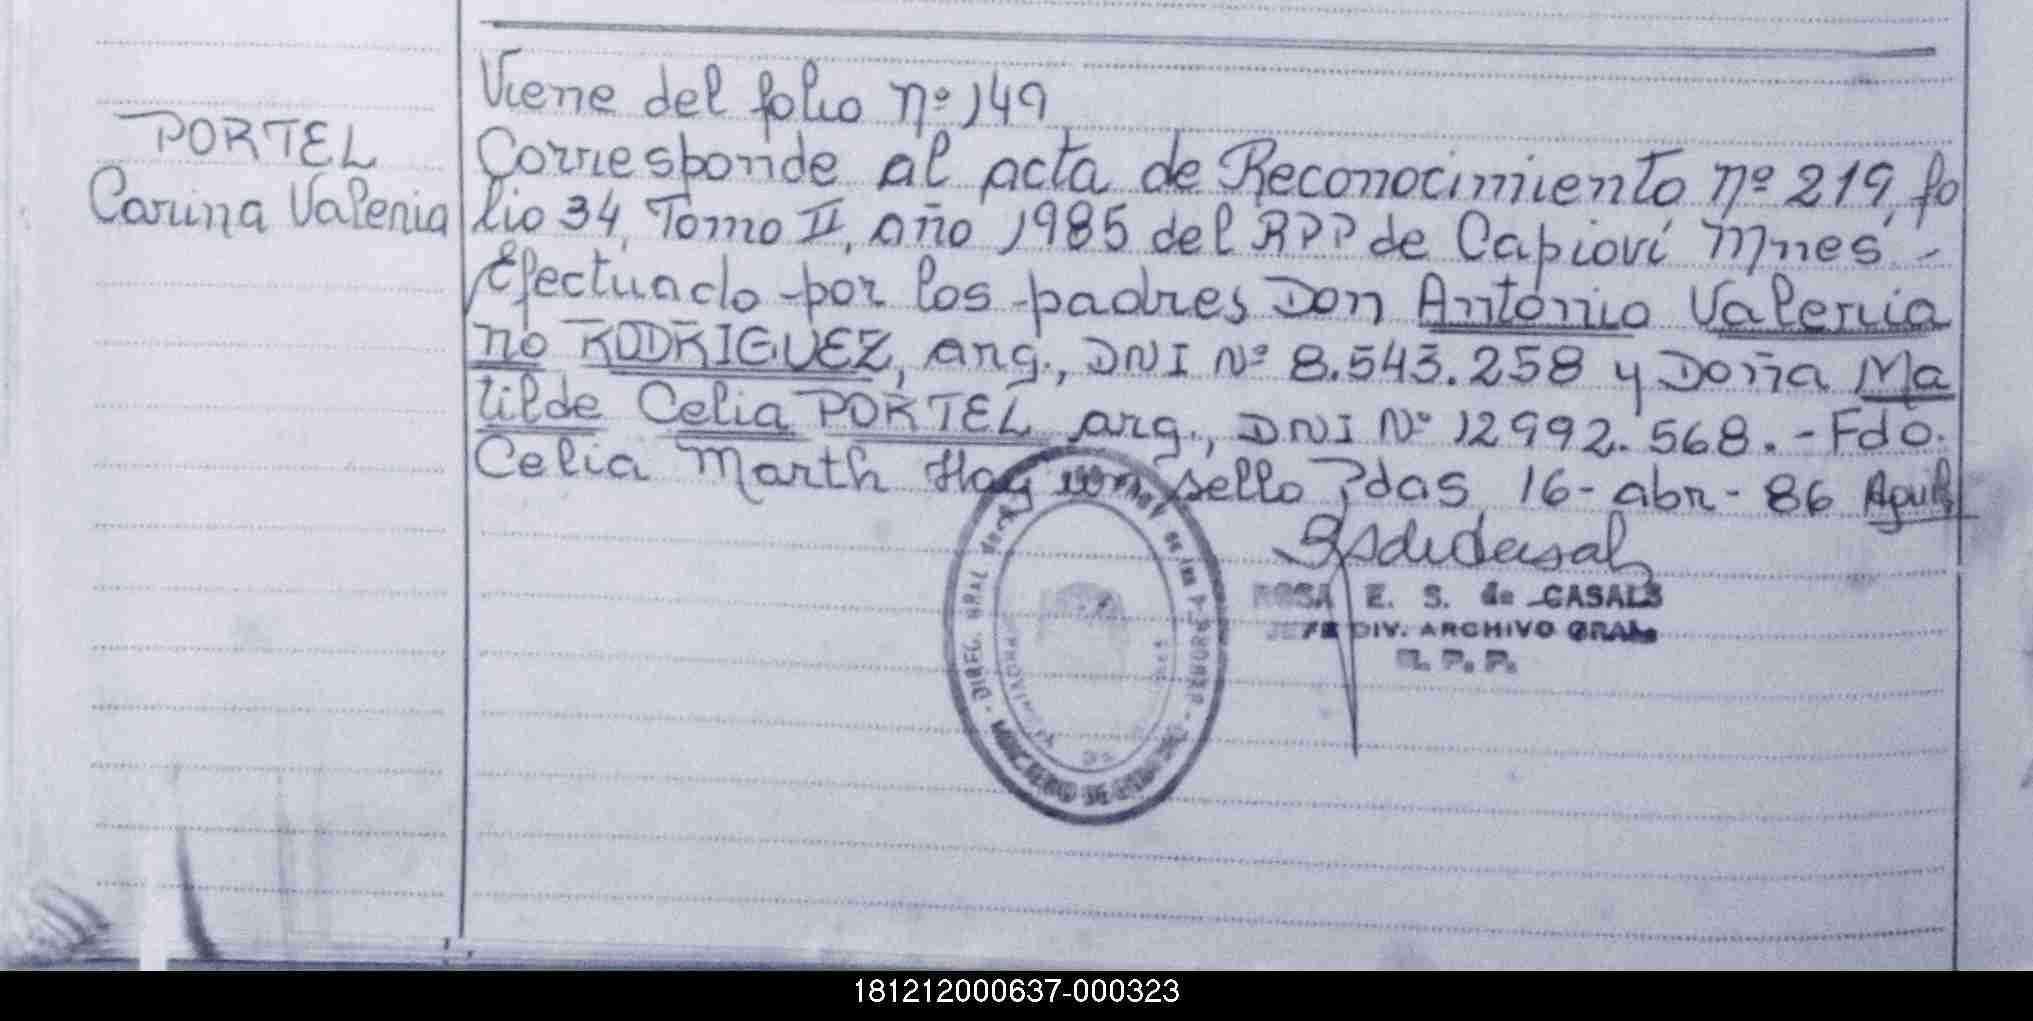 Viene del folio nº 149
PORTEL
Carina Valeria
Corresponde al acta de Reconocimiento nº 219, fo
lio 34, Tomo II, año 1985 del RPP de Capioví Mnes -
Efectuado por los padres Don Antonio Valeria
no RODRIGUEZ, arg., DNI Nº 8.543.258 y Doña Ma
tilde Celia PORTEL arg., DNI Nº 12992.568. - Fdo.
Celia Marth Hay un sello Pdas 16-abr-86
ROSA E. S. de CASALS
JEFE DIV. ARCHIVO GRAL.
R. P. P.
DIREC. GRAL del de las PERSONAS - MINISTERIO DE GOBIERNO
PROVINCIA DE
181212000637-000323